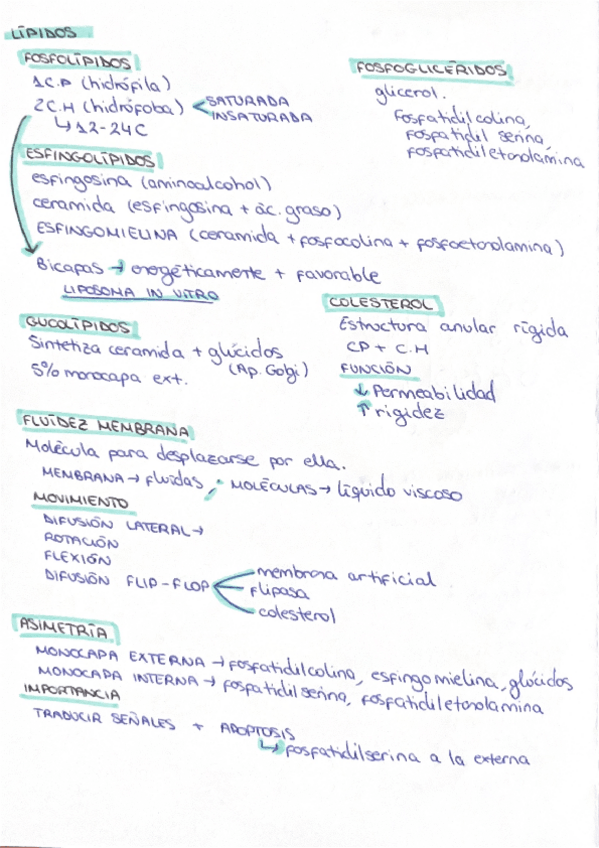 LÍPIDOS
FOSFOLÍPIDOS
1C.P (hidrófila)
2C.H (hidrófoba) SATURADA
INSATURADA
↳ 12-24C
FOSFOGLICÉRIDOS
glicerol.
Fosfatidilcolina,
fosfatidil serina,
fosfatidiletanolamina
ESFINGOLÍPIDOS
esfingosina (aminoalcohol)
ceramida (esfingosina + ác. graso)
ESFINGOMIELINA (ceramida + fosfocolina + fosfoetanolamina)
Bicapas → energéticamente + favorable
LIPOSOMA IN VITRO
GLICOLÍPIDOS
Sintetiza ceramida + glúcidos
(Ap. Golgi)
5% monocapa ext.
COLESTEROL
Estructura anular rígida
CP + C.H
FUNCIÓN
↓ Permeabilidad
↑ rigidez
FLUIDEZ MEMBRANA
Molécula para desplazarse por ella.
MEMBRANA → fluidas, MOLÉCULAS → líquido viscoso
MOVIMIENTO
DIFUSIÓN LATERAL →
ROTACIÓN
FLEXIÓN
DIFUSIÓN FLIP-FLOP
membrana artificial
flipasa
colesterol
ASIMETRÍA
MONOCAPA EXTERNA → fosfatidilcolina, esfingomielina, glúcidos
MONOCAPA INTERNA → fosfatidil serina, fosfatidiletanolamina
IMPORTANCIA
TRADUCIR SEÑALES + APOPTOSIS
↳ fosfatidilserina a la externa